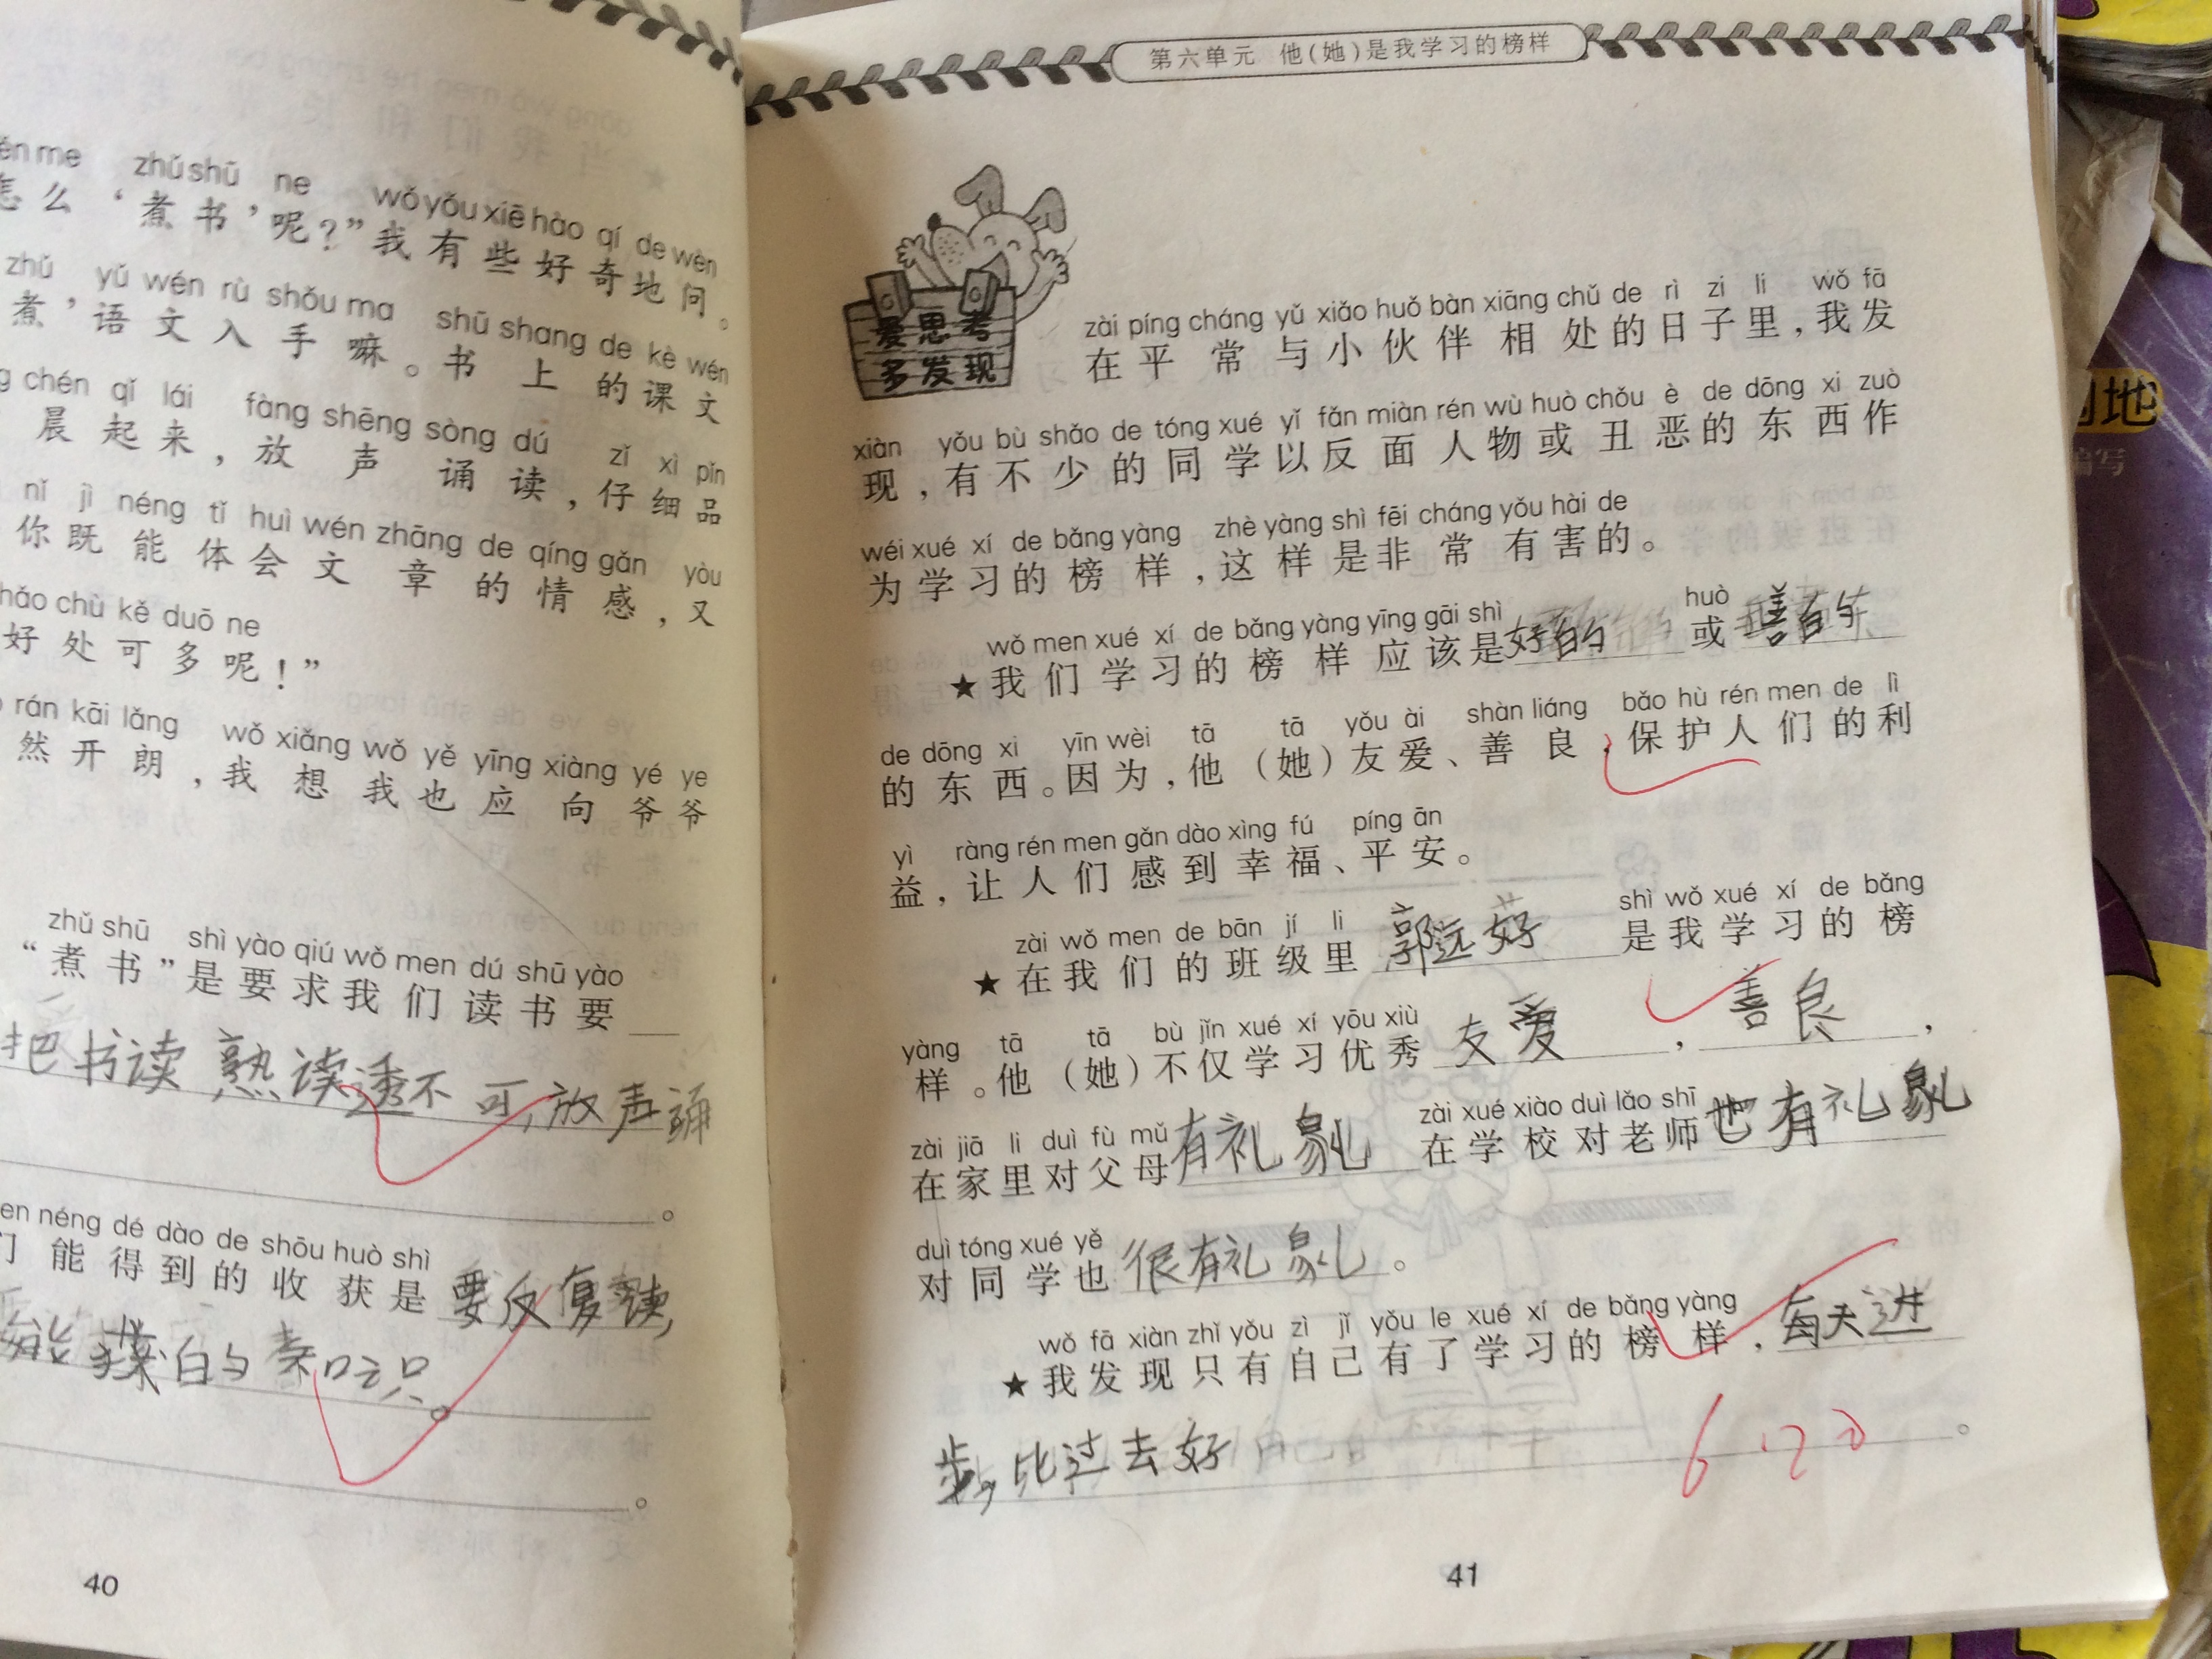 én me zhǔ shū ne wǒ yǒu xiē hào qí de wèn
怎么‘煮书’呢？”我有些好奇地问。
zhǔ yǔ wén rù shǒu ma shū shang de kè wén
煮，语文入手嘛。书上的课文
g chén qǐ lái fàng shēng sòng dú zǐ xì pǐn
晨起来，放声诵读，仔细品
nǐ jì néng tǐ huì wén zhāng de qíng gǎn yòu
你既能体会文章的情感，又
hǎo chù kě duō ne
好处可多呢！”
rán kāi lǎng wǒ xiǎng wǒ yě yīng xiàng yé ye
然开朗，我想我也应向爷爷
zhǔ shū shì yào qiú wǒ men dú shū yào
“煮书”是要求我们读书要
把书读熟读透不可，放声诵
。
en néng dé dào de shōu huò shì
们能得到的收获是要反复读，
。
40
第六单元 他（她）是我学习的榜样
爱思考
多发现
zài píng cháng yǔ xiǎo huǒ bàn xiāng chǔ de rì zi li wǒ fā
在平常与小伙伴相处的日子里，我发
xiàn yǒu bù shǎo de tóng xué yǐ fǎn miàn rén wù huò chǒu è de dōng xi zuò
现，有不少的同学以反面人物或丑恶的东西作
wéi xué xí de bǎng yàng zhè yàng shì fēi cháng yǒu hài de
为学习的榜样，这样是非常有害的。
wǒ men xué xí de bǎng yàng yīng gāi shì huò
★我们学习的榜样应该是好的或善
de dōng xi yīn wèi tā tā yǒu ài shàn liáng bǎo hù rén men de lì
的东西。因为，他（她）友爱、善良，保护人们的利
yì ràng rén men gǎn dào xìng fú píng ān
益，让人们感到幸福、平安。
zài wǒ men de bān jí li shì wǒ xué xí de bǎng
★在我们的班级里郭远好是我学习的榜
yàng tā tā bù jǐn xué xí yōu xiù
样。他（她）不仅学习优秀友爱，善良，
zài jiā li duì fù mǔ zài xué xiào duì lǎo shī
在家里对父母有礼貌在学校对老师也有礼貌
duì tóng xué yě
对同学也很有礼貌。
wǒ fā xiàn zhǐ yǒu zì jǐ yǒu le xué xí de bǎng yàng
★我发现只有自己有了学习的榜样，每天进
步，比过去好。
41